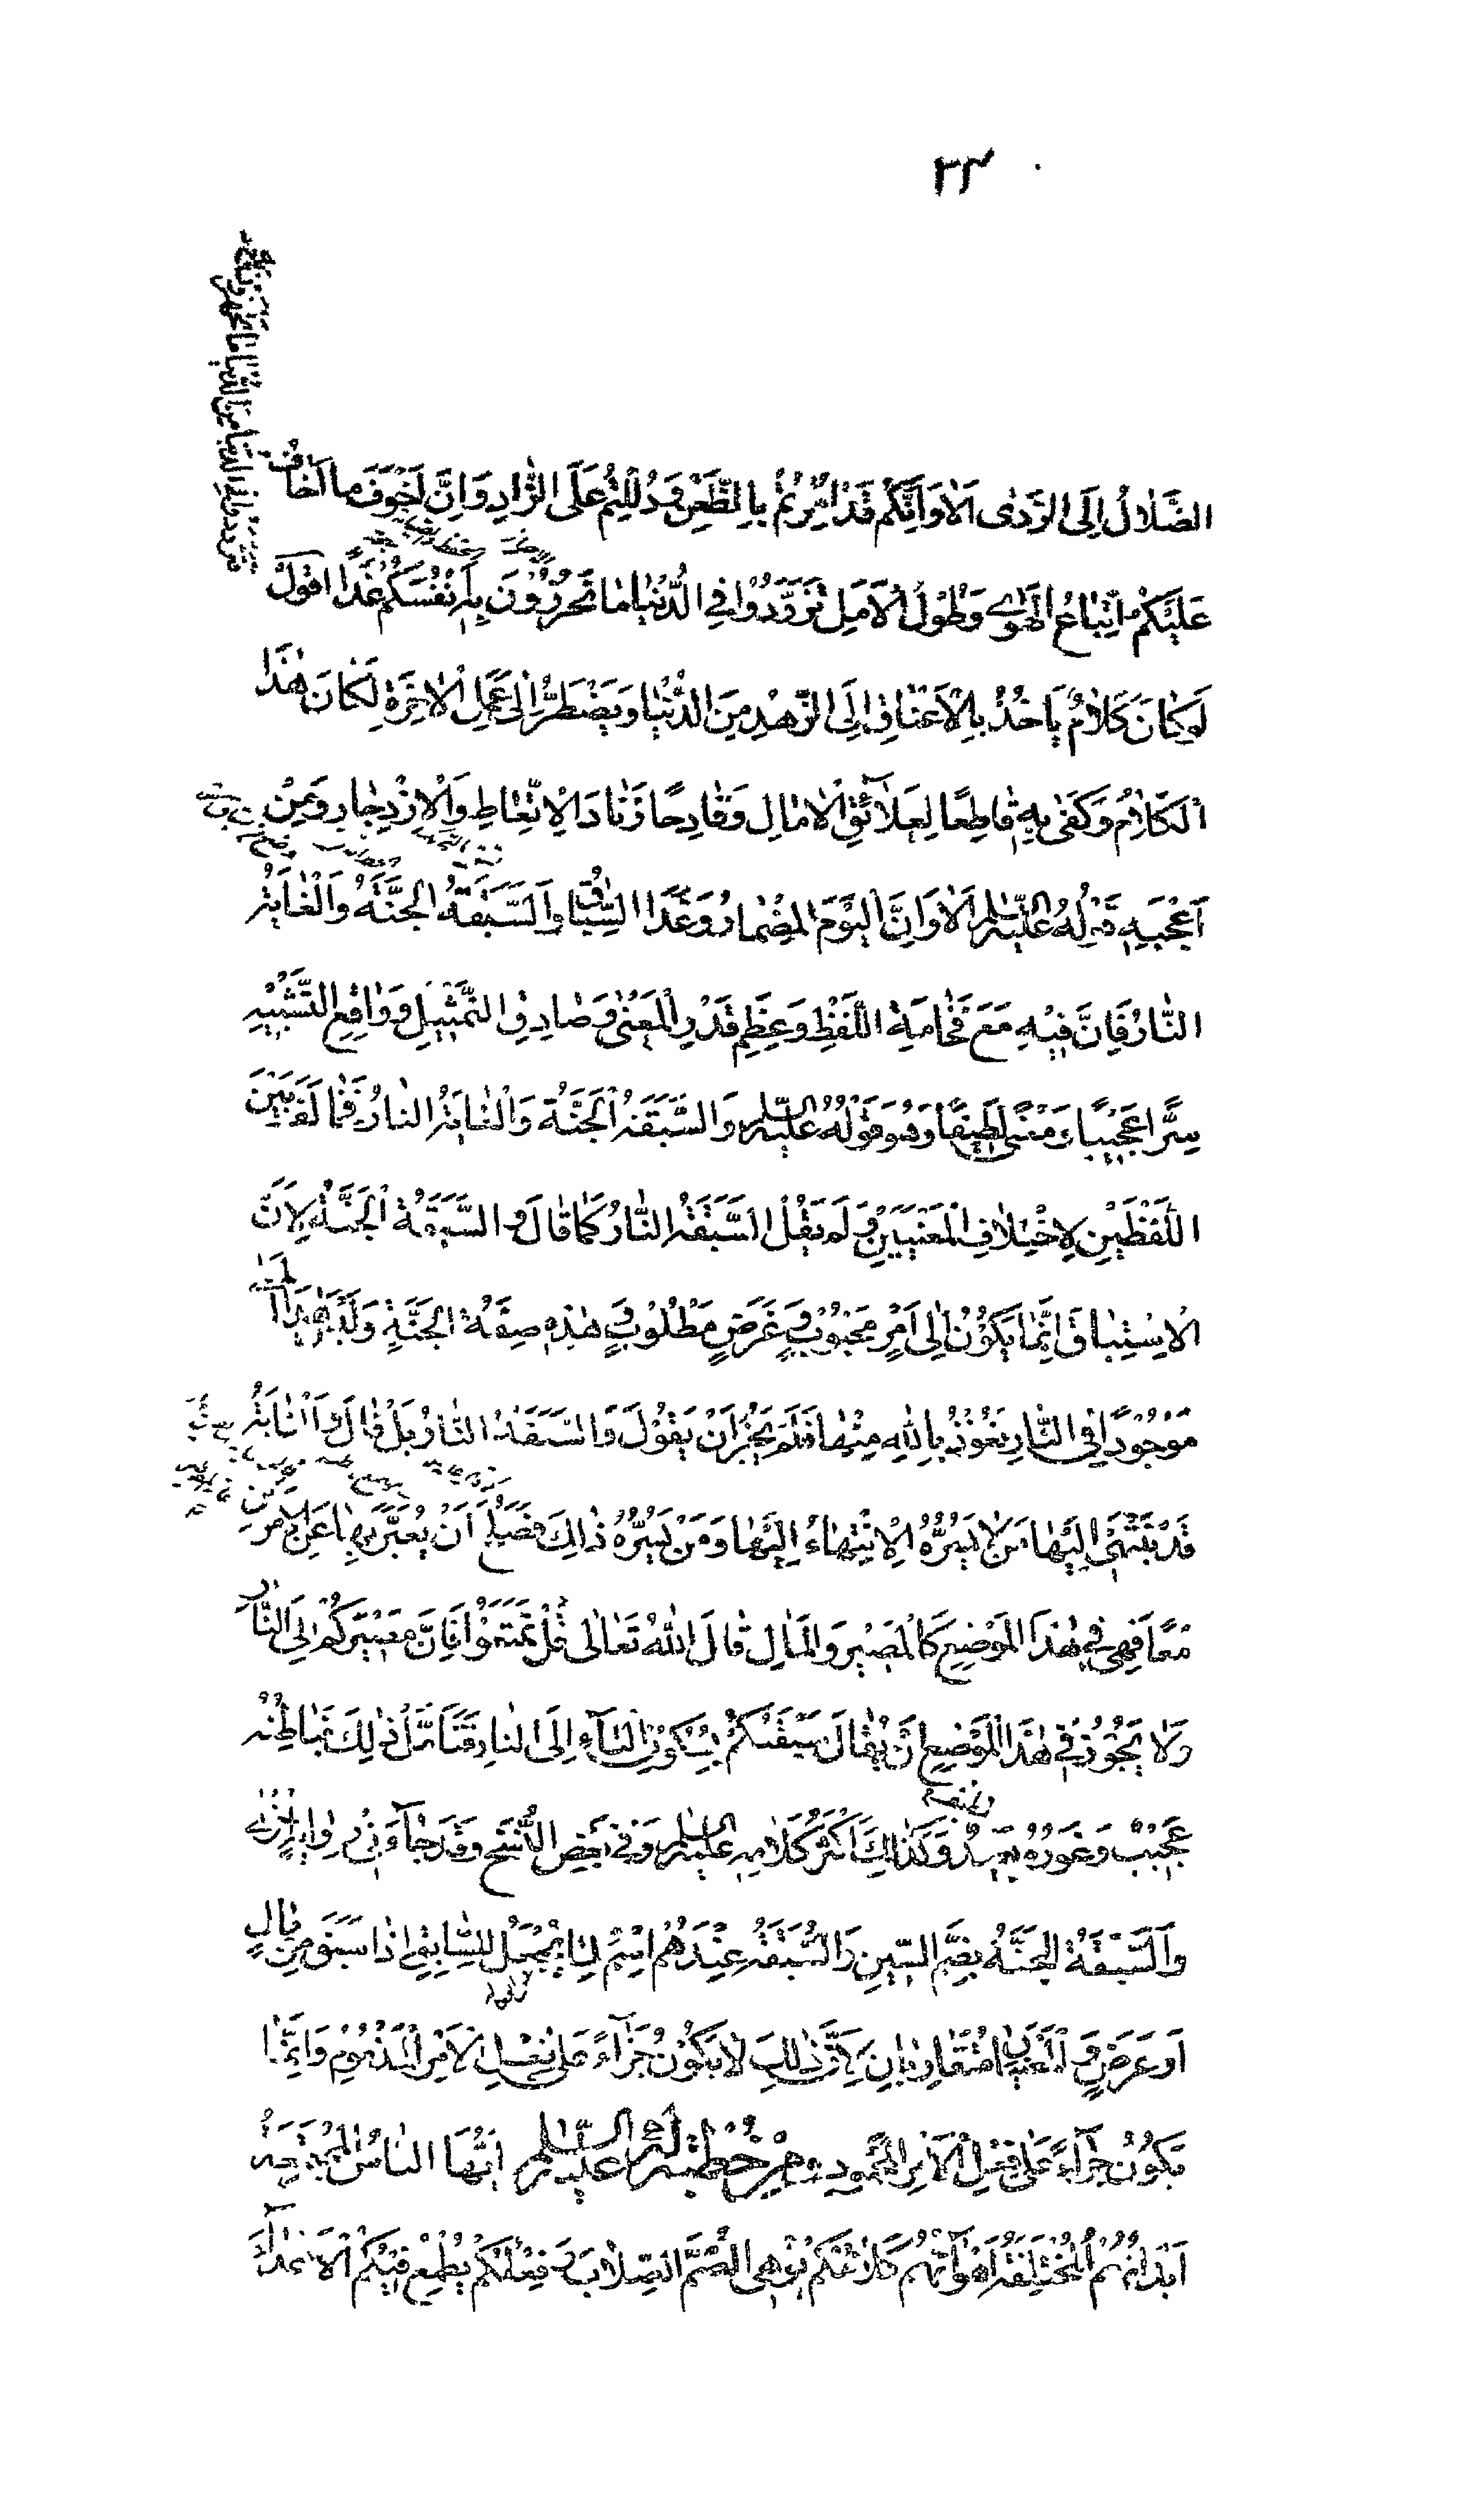 ٢٣
الضَّلَالُ إِلَى الرَّدٰى اَلَا وَاِنَّكُمْ قَدْ اُمِرْتُمْ بِالظَّعْنِ وَدُلِلْتُمْ عَلَى الزَّادِ وَاِنَّ اَخْوَفَ ما اَخَافُ
عَلَيْكُمْ اِتِّبَاعُ الْهَوٰى وَطُوْلُ الْاَمَلِ تَزَوَّدُوْا فِي الدُّنْيَا مَا تَحْرُزُوْنَ بِهٖ اَنْفُسَكُمْ غَدًا اقول
لَوْ كَانَ كَلَامٌ يَاْخُذُ بِالْاَعْنَاقِ اِلَى الزُّهْدِ مِنَ الدُّنْيَا وَيَضْطَرُّ اِلٰى عَمَلِ الْاٰخِرَةِ لَكَانَ هٰذَا
الْكَلَامُ وَكَفٰى بِهٖ قَاطِعًا لِعَلَآئِقِ الْاٰمَالِ وَقَادِحًا زِنَادَ الْاِتِّعَاظِ وَالْاِزْدِجَارِ وَمِنْ
اَعْجَبِهٖ قَوْلُهُ عَلَيْهِ السَّلَامُ اَلَا وَاِنَّ الْيَوْمَ الْمِضْمَارُ وَغَدًا السِّبَاقُ وَالسَّبَقَةُ الْجَنَّةُ وَالْغَايَةُ
النَّارُ فَاِنَّ فِيْهِ مَعَ فَخَامَةِ اللَّفْظِ وَعِظَمِ قَدْرِ الْمَعْنٰى وَصَادِقِ التَّمْثِيْلِ وَوَاقِعِ التَّشْبِيْهِ
سِرًّا عَجِيْبًا وَمَعْنًى لَطِيْفًا وَهُوَ قَوْلُهُ عَلَيْهِ السَّلَامُ وَالسَّبَقَةُ الْجَنَّةُ وَالْغَايَةُ النَّارُ فَخَالَفَ بَيْنَ
اللَّفْظَيْنِ لِاخْتِلَافِ الْمَعْنَيَيْنِ وَلَمْ يَقُلْ السَّبَقَةُ النَّارُ كَمَا قَالَ وَالسَّبَقَةُ الْجَنَّةُ لِاَنَّ
الْاِسْتِبَاقَ اِنَّمَا يَكُوْنُ اِلٰى اَمْرٍ مَحْبُوْبٍ وَغَرَضٍ مَطْلُوْبٍ وَهٰذِهٖ صِفَةُ الْجَنَّةِ وَلَيْسَ هٰذَا الْمَعْنٰى
مَوْجُوْدًا فِي النَّارِ نَعُوْذُ بِاللّٰهِ مِنْهَا فَلَمْ يَجُزْ اَنْ يَقُوْلَ وَالسَّبَقَةُ النَّارُ بَلْ قَالَ وَالْغَايَةُ
قَدْ يَنْتَهِيْ اِلَيْهَا مَنْ لَا يَسُرُّهُ الْاِنْتِهَاءُ اِلَيْهَا وَمَنْ يَسُرُّهُ ذٰلِكَ فَصَلُحَ اَنْ يُعَبَّرَ بِهَا عَنِ الْاَمْرَيْنِ
مَعًا فَهِيَ فِيْ هٰذَا الْمَوْضِعِ كَالْمَصِيْرِ وَالْمَآلِ قَالَ اللّٰهُ تَعَالٰى قُلْ تَمَتَّعُوْا فَاِنَّ مَصِيْرَكُمْ اِلَى النَّارِ
وَلَا يَجُوْزُ فِيْ هٰذَا الْمَوْضِعِ اَنْ يُقَالَ سَبْقَتَكُمْ بِسُكُوْنِ الْبَآءِ اِلَى النَّارِ فَتَاَمَّلْ ذٰلِكَ فَبَاطِنُهُ
عَجِيْبٌ وَغَوْرُهُ بَعِيْدٌ وَكَذٰلِكَ اَكْثَرُ كَلَامِهٖ عَلَيْهِ السَّلَامُ وَفِيْ بَعْضِ النُّسَخِ وَقَدْ جَآءَ فِيْ رِوَايَةٍ اُخْرٰى
وَالسُّبْقَةُ الْجَنَّةُ بِضَمِّ السِّيْنِ وَالسُّبْقَةُ عِنْدَهُمْ اِسْمٌ لِمَا يُجْعَلُ لِلسَّابِقِ اِذَا سَبَقَ مِنْ مَالٍ
اَوْ عَرَضٍ وَالْمَعْنَيَانِ مُتَقَارِبَانِ لِاَنَّ ذٰلِكَ لَا يَكُوْنُ جَزَآءً عَلٰى فِعْلِ الْاَمْرِ الْمَذْمُوْمِ وَاِنَّمَا
يَكُوْنُ جَزَآءً عَلٰى فِعْلِ الْاَمْرِ الْمَحْمُوْدِ وَمِنْ خُطْبَةٍ لَهُ عَلَيْهِ السَّلَامُ اَيُّهَا النَّاسُ الْمُجْتَمِعَةُ
اَبْدَانُهُمْ الْمُخْتَلِفَةُ اَهْوَآؤُهُمْ كَلَامُكُمْ يُوْهِي الصُّمَّ الصِّلَابَ وَفِعْلُكُمْ يُطْمِعُ فِيْكُمُ الْاَعْدَآءَ